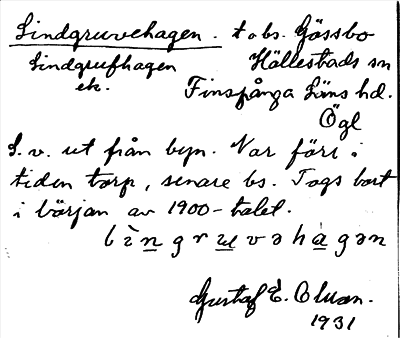 Lindgruvehagen. t. o bs. Gässbo
Lindgrufhagen Hällestads sn
ek. Finspånga Läns hd.
Ögl
S. v. ut från byn. Var förr i
tiden torp, senare bs. Togs bort
i början av 1900-talet.
lìngruvəhagən
Gustaf E.
1931